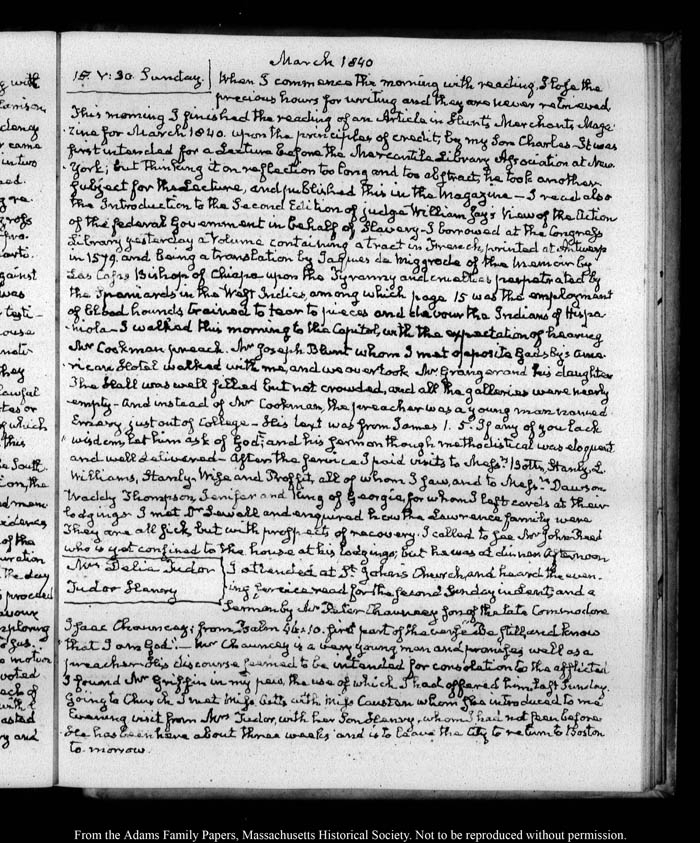 March 1840
15. V: 30. Sunday.
When I commence the morning with reading, I lose the
precious hours for writing and they are never retrieved
This morning I finished the reading of an Article in Hunts Merchants Maga-
zine for March 1840. upon the principles of credit, by my Son Charles. It was
first intended for a Lecture before the Mercantile Library Association at New-
York; but thinking it on reflection too long and too abstract, he took another
subject for the Lecture, and published this in the Magazine — I read also
the Introduction to the Second Edition of judge William Jay's View of the Action
of the federal Government in behalf of Slavery — I borrowed at the Congress
Library yesterday a Volume containing a tract in French, printed at Antwerp
in 1579. and being a translation by Jaques de Miggrode of the Memoir by
Las Casas Bishop of Chiapa upon the Tyranny and cruelties perpetrated by
the Spaniards in the West Indies, among which page 15 was the employment
of blood hounds trained to tear to pieces and devour the Indians of Hispa-
niola — I walked this morning to the Capitol, with the expectation of hearing
Mr Cookman preach. Mr Joseph Blunt whom I met opposite Gadsby's Ame-
rican Hotel walked with me, and we overtook Mr Granger and his daughter
The Hall was well filled but not crowded, and all the galleries were nearly
empty — And instead of Mr Cookman, the preacher was a young man named
Emery, just out of College — His text was from James 1. 5. If any of you lack
wisdom, let him ask of God; and his sermon though methodistical was eloquent
and well delivered — After the service I paid visits to Messrs Botts, Hanly, L.
Williams, Stanly, Wise and Proffit, all of whom I saw, and to Messrs Dawson
Waddy Thompson, Jenifer and King of Georgia, for whom I left cards at their
lodgings — I met Dr Sewall and enquired how the Lawrence family were
They are all sick, but with prospects of recovery. I called to see Mr John Reed
who is yet confined to the house at his lodgings; but he was at dinner. Afternoon
Mrs Delia Tudor
Tudor Henry
I attended at St John's Church, and heard the even-
ing service read for the second Sunday in Lent; and a
Sermon by Mr Peter Chauncey son of the late Commodore
Isaac Chauncey; from Psalm 46:10. first part of the verse "Be still, and know
that I am God." — Mr Chauncey is a very young man and promises well as a
preacher — His discourse seemed to be intended for consolation to the afflicted
I found Mr Griffin in my pew, the use of which I had offered him, last Sunday.
Going to Church I met Miss Cutts with Miss Causten whom she introduced to me
Evening visit from Mrs Tudor, with her Son Henry, whom I had not seen before
He has been here about three weeks and is to leave the City to return to Boston
to-morrow.
From the Adams Family Papers, Massachusetts Historical Society. Not to be reproduced without permission.